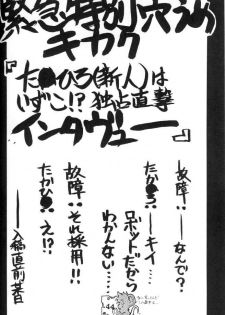 緊急特別穴うめ
キカク
『た●ひろ(新人)は
いずこ!? 独占直撃
インタヴュー』
――故障:なんで?
たか●ろ:――キイ
ロボットだから
わかんない…
故障:それ採用!!
たかひ●:え!?
――入稿直前某日
44